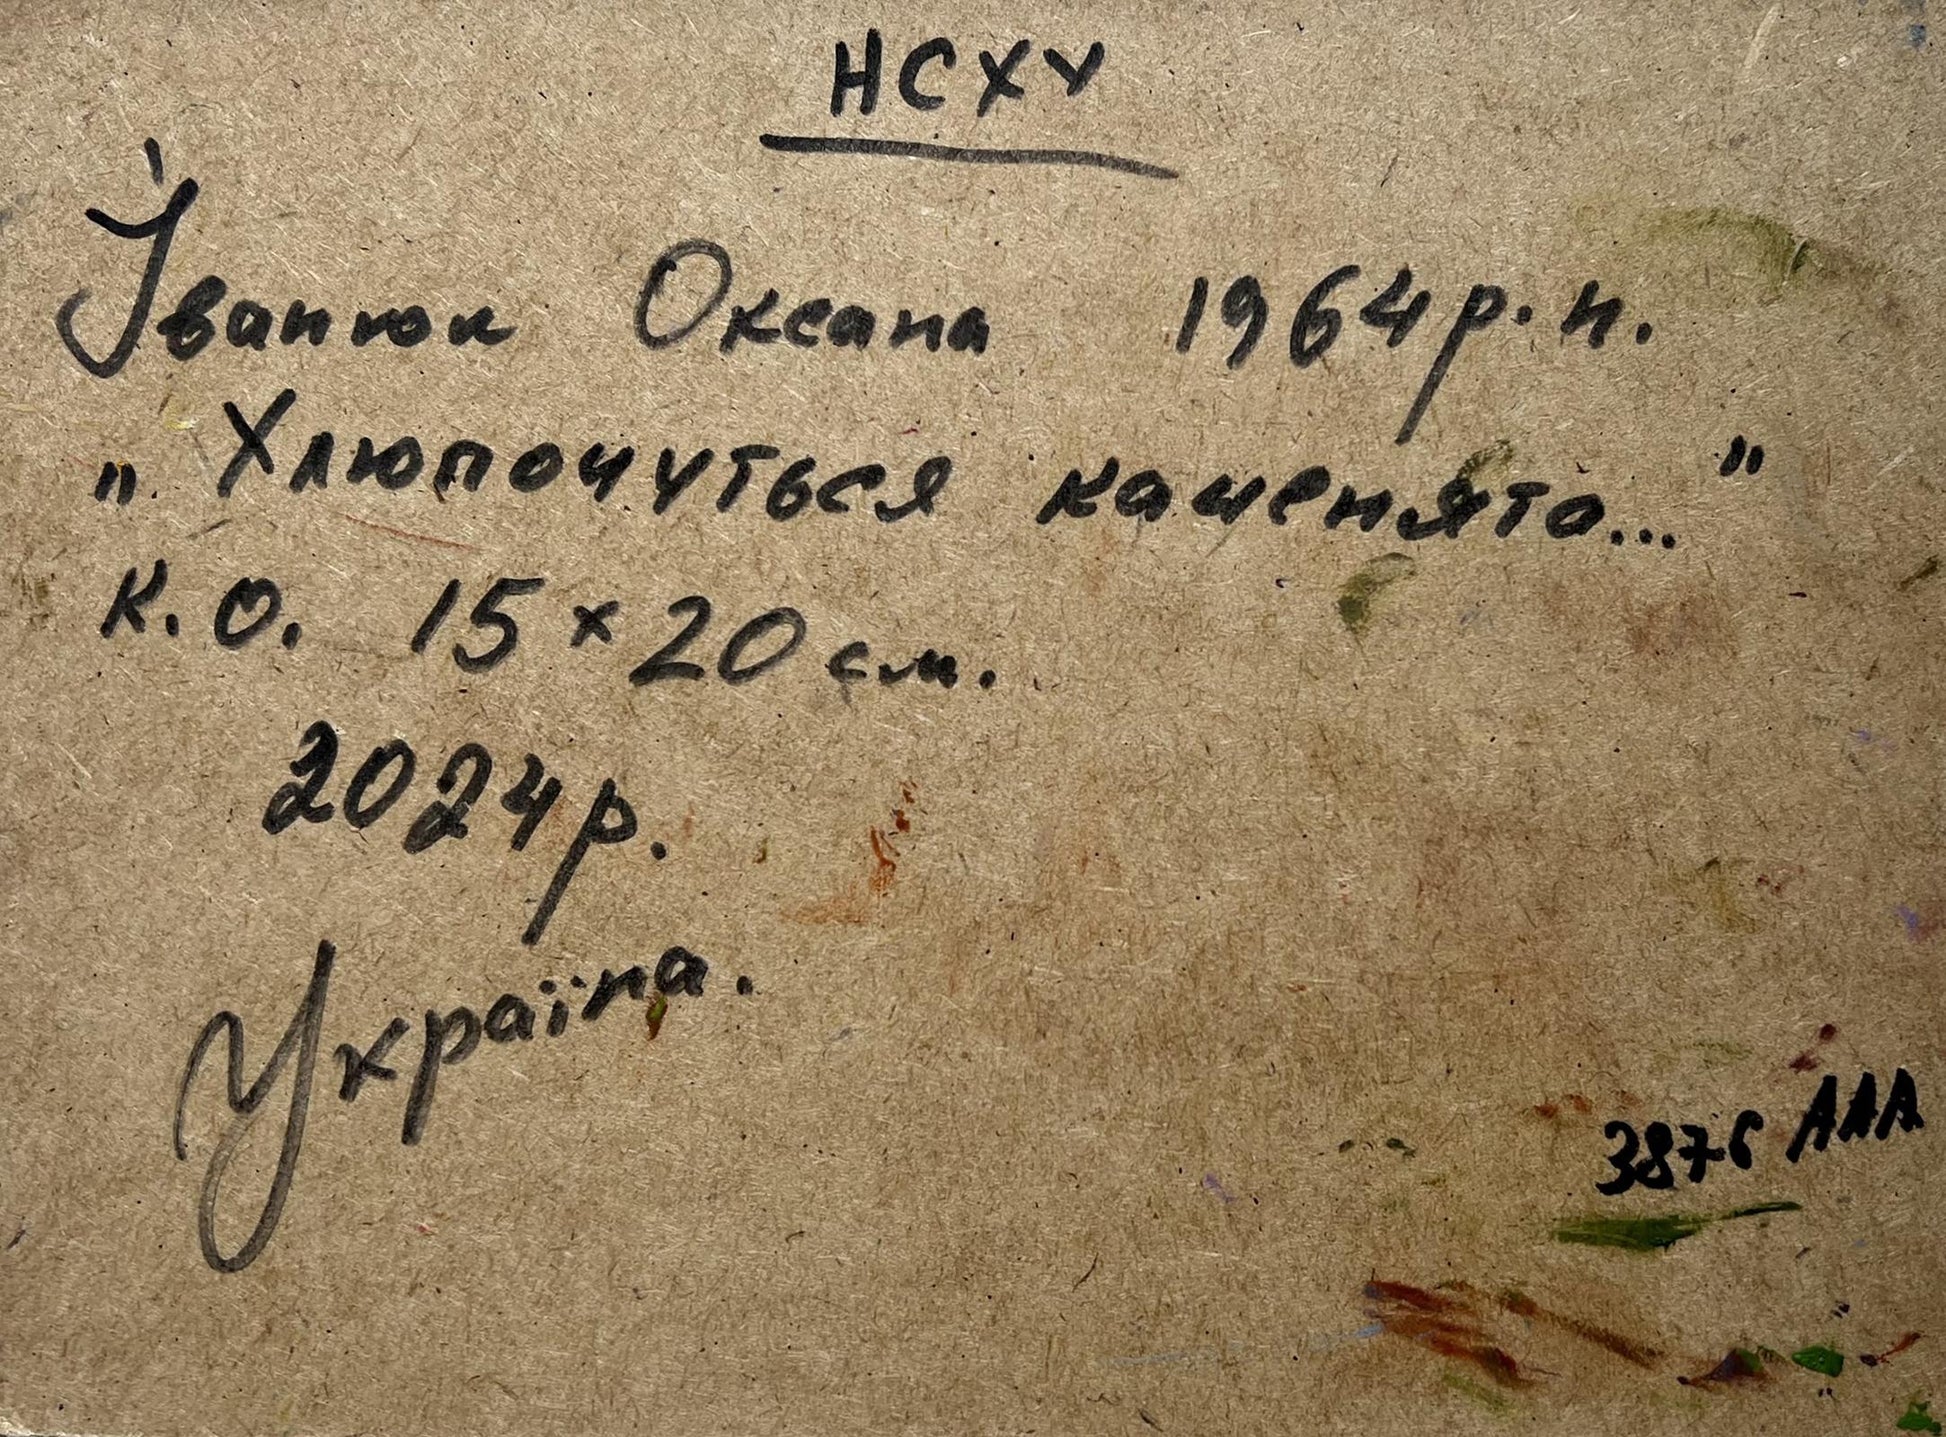 НСХУ
Іванюк Оксана 1964р.н.
„Хлюпочуться каченята..."
К.О. 15×20 см.
2024р.
Україна.
3876 ААА